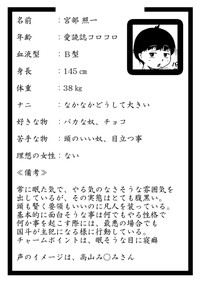 名前　：宮部 照一
年齢　：愛読誌コロコロ
血液型：Ｂ型
身長　：145 cm
体重　：38 kg
ナニ　：なかなかどうして大きい
好きな物　：バカな奴、チョコ
苦手な物　：頭のいい奴、目立つ事
理想の女性：ない
≪備考≫
常に眠たい気で、やる気のなさそうな雰囲気を
出しているが、その実態はとても腹黒い。
頭も賢く要領もいいのに凡人を装っている。
基本的に面白そうな事は何でもやる性格で
何か事を起こす際には、最悪の場合でも
国斗が主犯になる様に行動している。
チャームポイントは、眠そうな目に寝癖
声のイメージは、高山み〇みさん